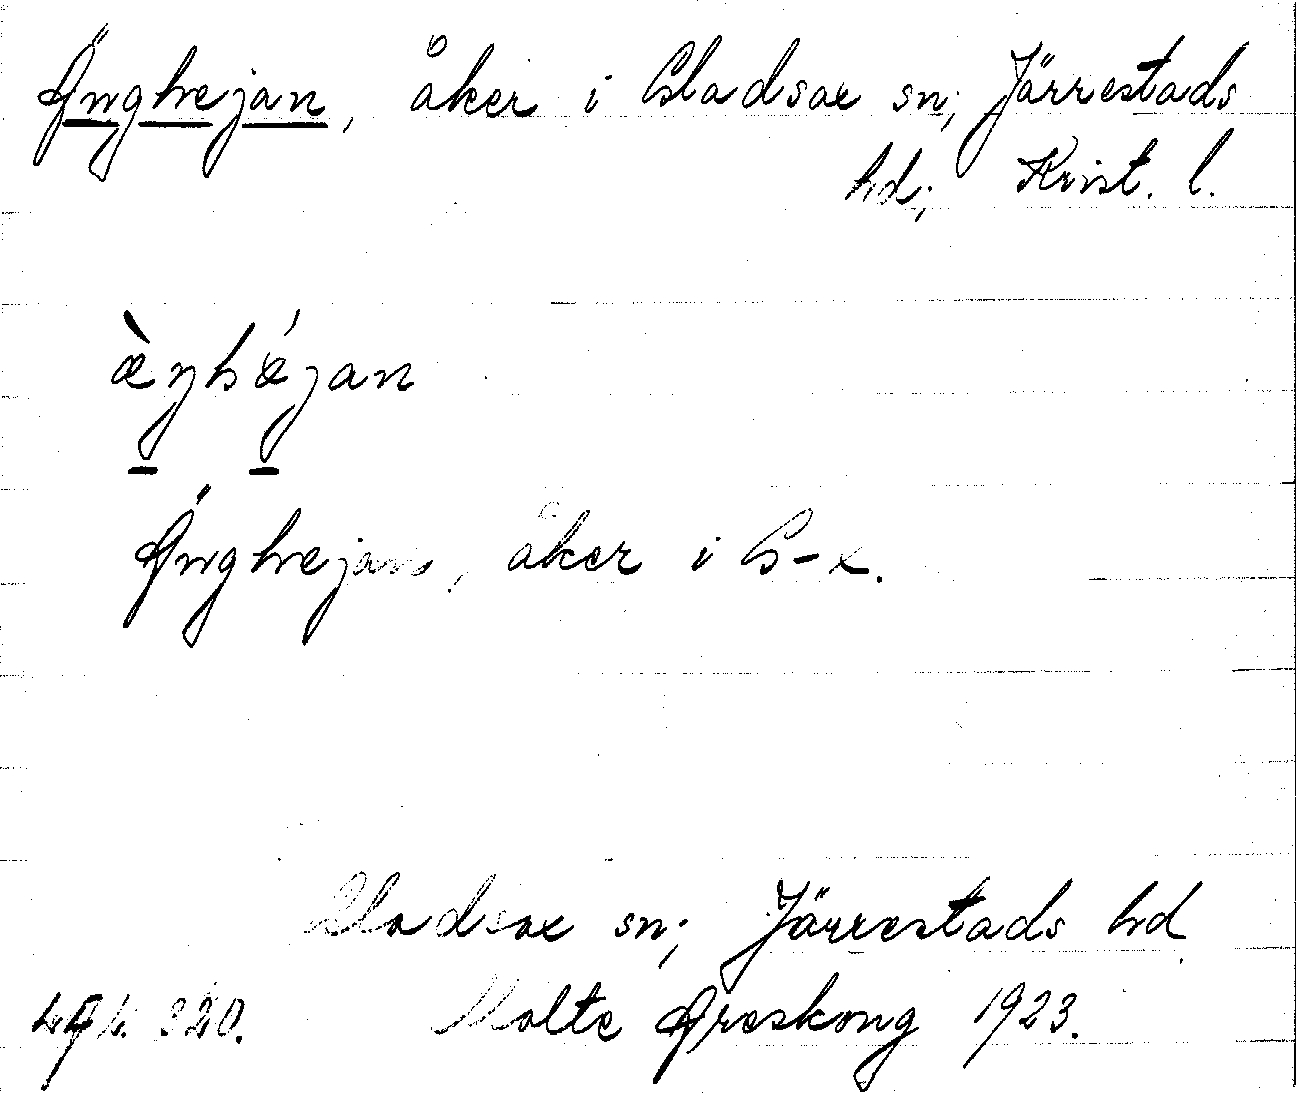 Änghejan, åker i Gladsax sn; Järrestads
hd; Krist. l.
æ̀ŋhǽjan
Änghejan, åker i G-x.
Gladsax sn; Järrestads hd
Malte Areskoug 1923.